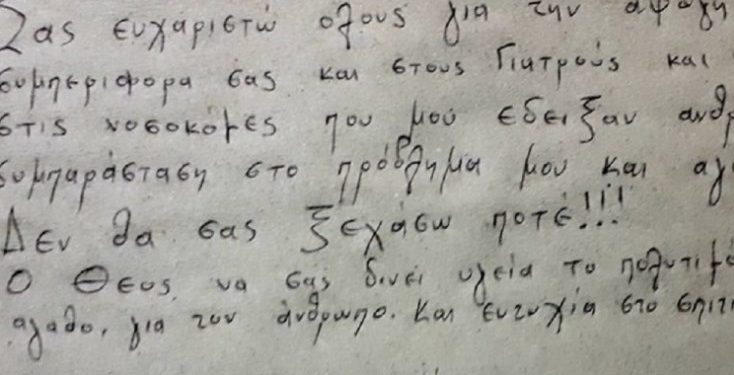 Σας ευχαριστώ ολους για την
συμπεριφορα σας και στους Γιατρούς και
στις νοσοκόμες που μου εδειξαν
συμπαράσταση στο πρόβλημα μου και
Δεν θα σας ξεχάσω ποτέ!!!
Ο Θεος να σας δινει υγεία το
αγαθο, για τον άνθρωπο. Και ευτυχία στο